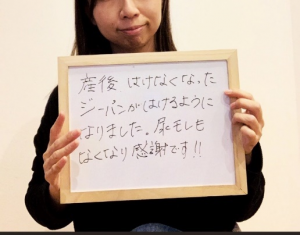 産後 はけなくなった
ジーパンがはけるように
なりました。尿モレも
なくなり感謝です!!